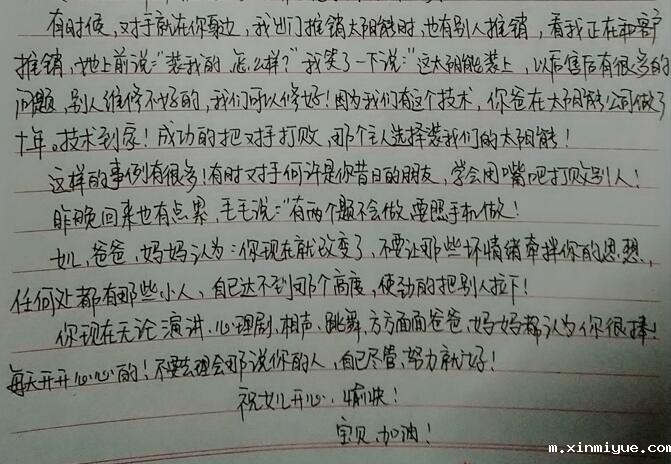 有时候，对手就在你身边，我出门推销太阳能时，也有别人推销，看我正在和客户
推销，她上前说："装我的怎么样？"我笑了一下说："这太阳能装上，以后售后有很多的
问题，别人维修不好的，我们可以修好！因为我们有这个技术，你爸在太阳能公司做了
十年。技术到家！成功的把对手打败，那个主人选择装我们的太阳能！
这样的事例有很多！有时对手何许是你昔日的朋友，学会用嘴吧打败别人！
昨晚回来也有点累，毛毛说："有两个题不会做，要照手机做！
女儿，爸爸、妈妈认为：你现在就改变了，不要让那些坏情绪牵拌你的思想，
任何处都有那些小人，自己达不到那个高度，使劲的把别人拉下！
你现在无论演讲、心理剧、相声、跳舞、方方面面爸爸、妈妈都认为你很捧！
每天开开心心的！不要去理会那说你的人，自己尽管努力就好！
祝女儿开心、愉快！
宝贝，加油！
m.xinmiyue.com